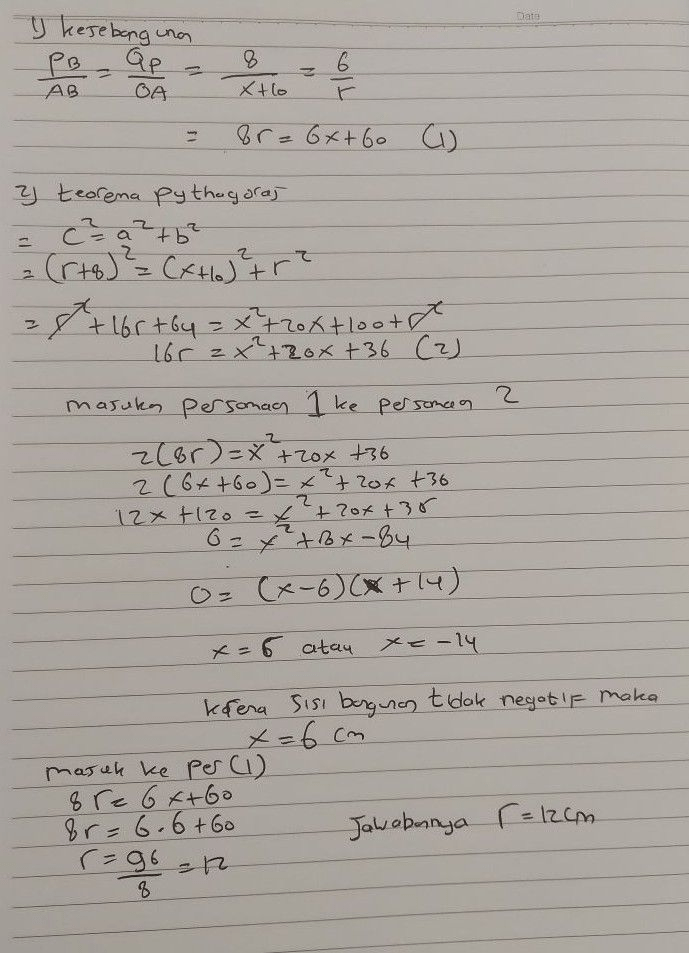 Date
1) kesebanguna
PB/AB = QP/OA = 8/x+10 = 6/r
= 8r = 6x+60 (1)
2) teorema pythagoras
= c²= a²+b²
= (r+8)² = (x+10)² + r²
= r² + 16r + 64 = x² + 20x + 100 + r²
16r = x² + 20x + 36 (2)
masukn persamaan 1 ke persamaan 2
2(8r) = x² + 20x + 36
2(6x+60) = x² + 20x + 36
12x + 120 = x² + 20x + 36
0 = x² + 8x - 84
0 = (x-6)(x+14)
x = 6 atau x = -14
karena sisi bangunan tidak negatif maka
x = 6 cm
masuk ke per (1)
8r = 6x+60
8r = 6.6+60 Jawabannya r = 12cm
r = 96/8 = 12